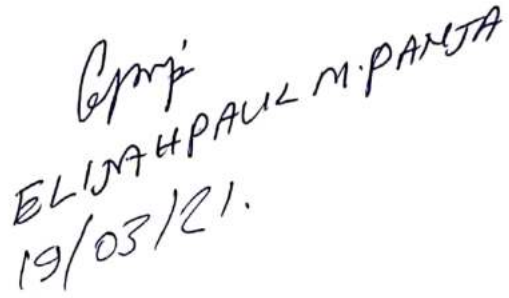 ELIJAHPAUL M. PANJA
19/03/21.